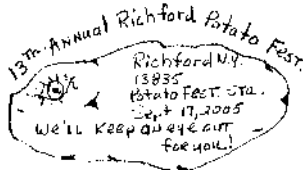 13TH. ANNUAL Richford Potato Fest.
Richford N.Y.
13835
Potato Fest. Sta.
Sept 17, 2005
We'll Keep an eye out
for you!